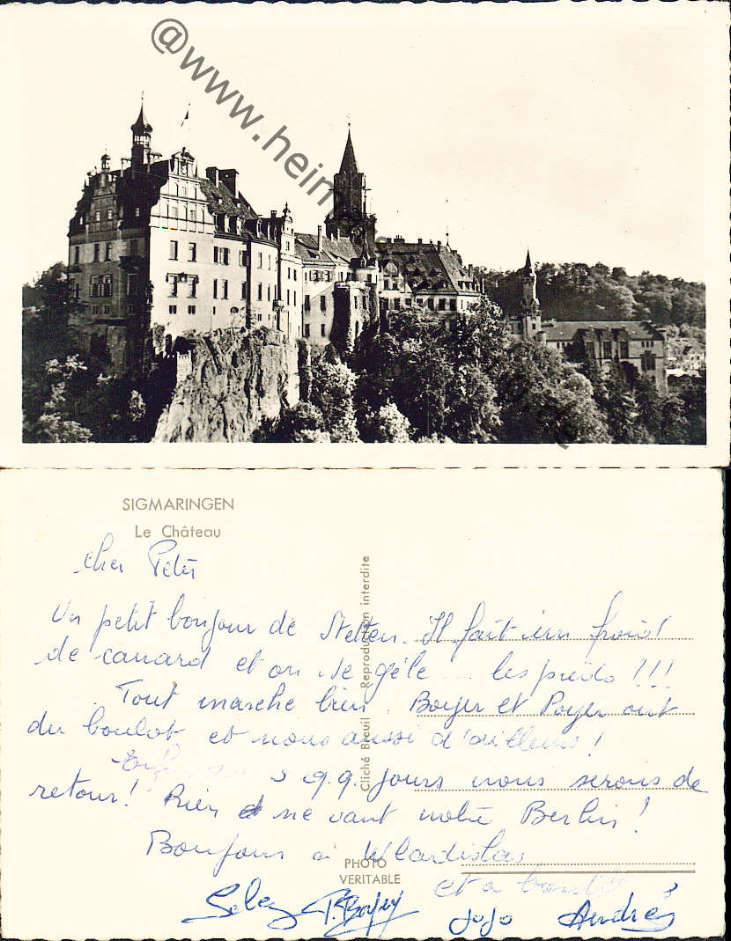 @www.heim
SIGMARINGEN
Le Château
Cher Peter
Un petit bonjour de Stetten. Il fait un froid
de canard et on se gèle ... les pieds !!!
Tout marche bien. Boyer et Poyer ont
du boulot et nous aussi d'ailleurs !
q.q. jours nous serons de
retour! Rien ne vaut notre Berlin !
Bonjour à Wladislas
et a
PHOTO
VERITABLE
Cliché Breuil Reproduction interdite
Jojo André